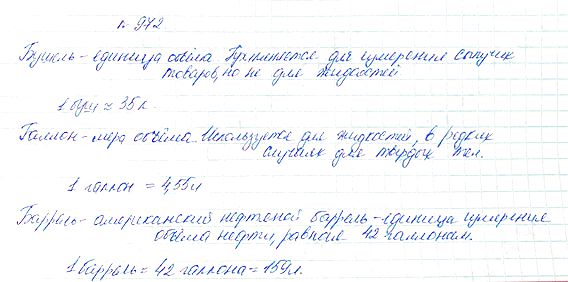 № 972
Бушель - единица объёма. Применяется для измерения сыпучих
товаров, но не для жидкостей
1 буш ≈ 35 л.
Галлон - мера объёма. Используется для жидкостей, в редких
случаях для твёрдых тел.
1 галлон = 4,55 л
Баррель - американский нефтяной баррель - единица измерения
объёма нефти, равная 42 галлонам.
1 баррель = 42 галлона = 159 л.